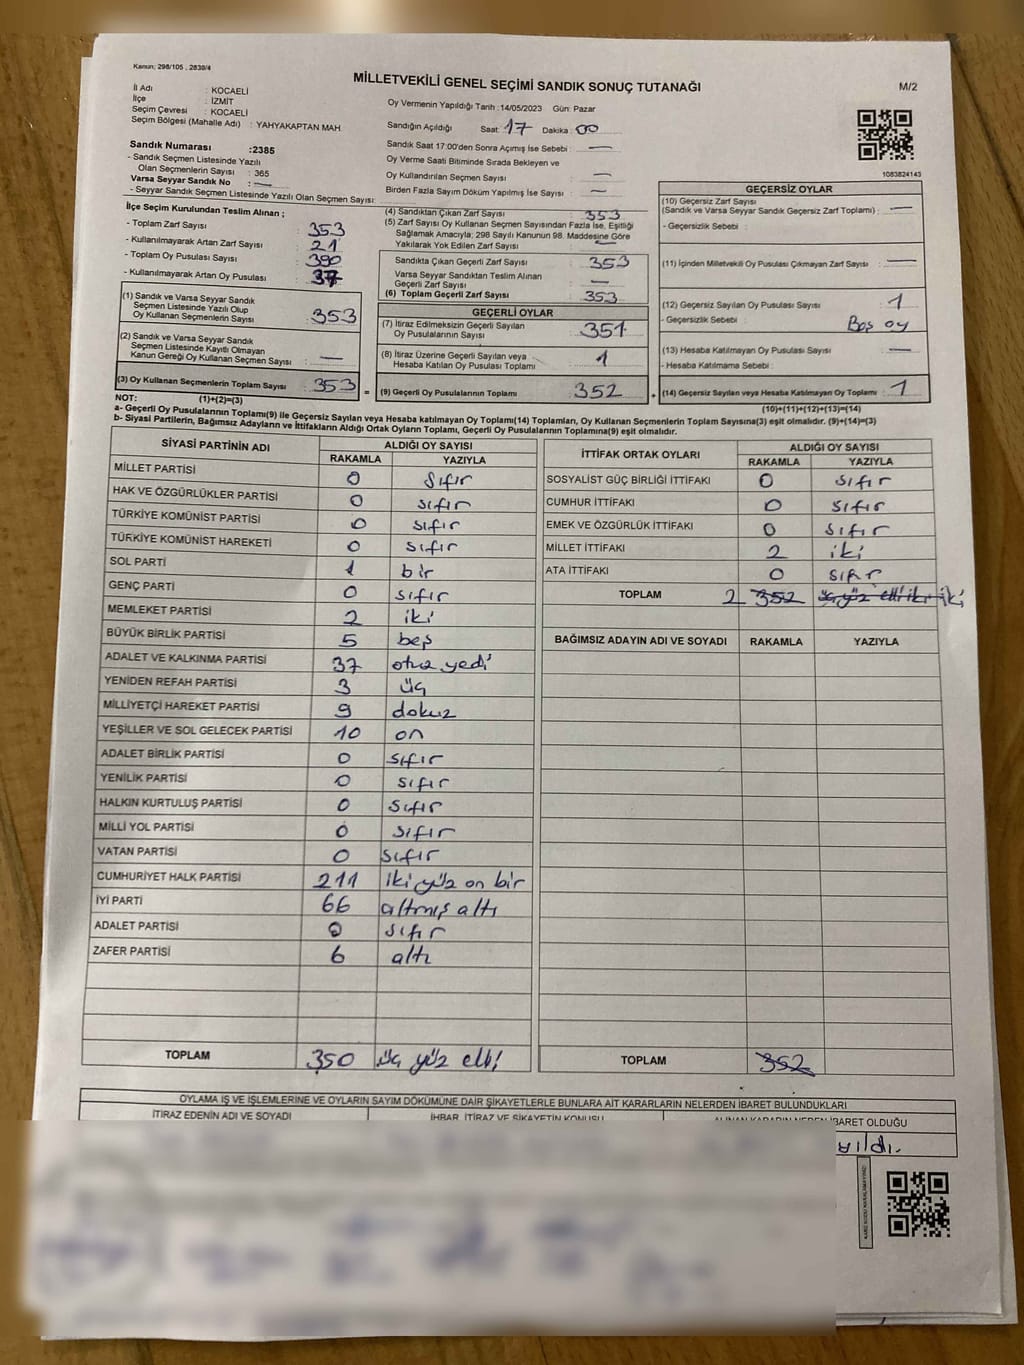 Kanun: 298/105 , 2839/4
MİLLETVEKİLİ GENEL SEÇİMİ SANDIK SONUÇ TUTANAĞI
M/2
İl Adı : KOCAELİ
İlçe : İZMİT
Seçim Çevresi : KOCAELİ
Seçim Bölgesi (Mahalle Adı) : YAHYAKAPTAN MAH
Sandık Numarası :2385
- Sandık Seçmen Listesinde Yazılı
Olan Seçmenlerin Sayısı : 365
Varsa Seyyar Sandık No : —
- Seyyar Sandık Seçmen Listesinde Yazılı Olan Seçmen Sayısı:
Oy Vermenin Yapıldığı Tarih : 14/05/2023 Gün: Pazar
Sandığın Açıldığı Saat: 17 Dakika: 00
Sandık Saat 17:00'den Sonra Açımış İse Sebebi : —
Oy Verme Saati Bitiminde Sırada Bekleyen ve
Oy Kullandırılan Seçmen Sayısı : —
Birden Fazla Sayım Döküm Yapılmış İse Sayısı : —
1083824143
İlçe Seçim Kurulundan Teslim Alınan ;
- Toplam Zarf Sayısı : 353
- Kullanılmayarak Artan Zarf Sayısı : 21
- Toplam Oy Pusulası : 390
- Kullanılmayarak Artan Oy Pusulası : 37
(1) Sandık ve Varsa Seyyar Sandık
Seçmen Listesinde Yazılı Olup
Oy Kullanan Seçmenlerin Sayısı : 353
(2) Sandık ve Varsa Seyyar Sandık
Seçmen Listesinde Kayıtlı Olmayan
Kanun Gereği Oy Kullanan Seçmen Sayısı : —
(3) Oy Kullanan Seçmenlerin Toplam Sayısı : 353 =
(4) Sandıktan Çıkan Zarf Sayısı : 353
(5) Zarf Sayısı Oy Kullanan Seçmen Sayısından Fazla İse, Eşitliği
Sağlamak Amacıyla; 298 Sayılı Kanunun 98. Maddesine Göre
Yakılarak Yok Edilen Zarf Sayısı : —
Sandıkta Çıkan Geçerli Zarf Sayısı : 353
Varsa Seyyar Sandıktan Teslim Alınan
Geçerli Zarf Sayısı : —
(6) Toplam Geçerli Zarf Sayısı : 353
GEÇERLİ OYLAR
(7) İtiraz Edilmeksizin Geçerli Sayılan
Oy Pusulalarının Sayısı : 351
(8) İtiraz Üzerine Geçerli Sayılan veya
Hesaba Katılan Oy Pusulası Toplamı : 1
(9) Geçerli Oy Pusulalarının Toplamı : 352 +
GEÇERSİZ OYLAR
(10) Geçersiz Zarf Sayısı
(Sandık ve Varsa Seyyar Sandık Geçersiz Zarf Toplamı) : —
- Geçersizlik Sebebi :
(11) İçinden Milletvekili Oy Pusulası Çıkmayan Zarf Sayısı : —
(12) Geçersiz Sayılan Oy Pusulası Sayısı : 1
- Geçersizlik Sebebi : Boş oy
(13) Hesaba Katılmayan Oy Pusulası Sayısı : —
- Hesaba Katılmama Sebebi :
(14) Geçersiz Sayılan veya Hesaba Katılmayan Oy Toplamı : 1
NOT: (1)+(2)=(3)
(10)+(11)+(12)+(13)=(14)
a- Geçerli Oy Pusulalarının Toplamı(9) ile Geçersiz Sayılan veya Hesaba katılmayan Oy Toplamı(14) Toplamları, Oy Kullanan Seçmenlerin Toplam Sayısına(3) eşit olmalıdır. (9)+(14)=(3)
b- Siyasi Partilerin, Bağımsız Adayların ve İttifakların Aldığı Ortak Oyların Toplamı, Geçerli Oy Pusulalarının Toplamına(9) eşit olmalıdır.
SİYASİ PARTİNİN ADI ALDIĞI OY SAYISI
RAKAMLA YAZIYLA
MİLLET PARTİSİ 0 sıfır
HAK VE ÖZGÜRLÜKLER PARTİSİ 0 sıfır
TÜRKİYE KOMÜNİST PARTİSİ 0 sıfır
TÜRKİYE KOMÜNİST HAREKETİ 0 sıfır
SOL PARTİ 1 bir
GENÇ PARTİ 0 sıfır
MEMLEKET PARTİSİ 2 iki
BÜYÜK BİRLİK PARTİSİ 5 beş
ADALET VE KALKINMA PARTİSİ 37 otuz yedi
YENİDEN REFAH PARTİSİ 3 üç
MİLLİYETÇİ HAREKET PARTİSİ 9 dokuz
YEŞİLLER VE SOL GELECEK PARTİSİ 10 on
ADALET BİRLİK PARTİSİ 0 sıfır
YENİLİK PARTİSİ 0 sıfır
HALKIN KURTULUŞ PARTİSİ 0 sıfır
MİLLİ YOL PARTİSİ 0 sıfır
VATAN PARTİSİ 0 sıfır
CUMHURİYET HALK PARTİSİ 211 iki yüz on bir
İYİ PARTİ 66 altmış altı
ADALET PARTİSİ 0 sıfır
ZAFER PARTİSİ 6 altı
TOPLAM 350 üç yüz elli
İTTİFAK ORTAK OYLARI ALDIĞI OY SAYISI
RAKAMLA YAZIYLA
SOSYALİST GÜÇ BİRLİĞİ İTTİFAKI 0 sıfır
CUMHUR İTTİFAKI 0 sıfır
EMEK VE ÖZGÜRLÜK İTTİFAKI 0 sıfır
MİLLET İTTİFAKI 2 iki
ATA İTTİFAKI 0 sıfır
TOPLAM 2 352 üç yüz elli iki iki
BAĞIMSIZ ADAYIN ADI VE SOYADI RAKAMLA YAZIYLA
TOPLAM 352
OYLAMA İŞ VE İŞLEMLERİNE VE OYLARIN SAYIM DÖKÜMÜNE DAİR ŞİKAYETLERLE BUNLARA AİT KARARLARIN NELERDEN İBARET BULUNDUKLARI
İTİRAZ EDENİN ADI VE SOYADI İHBAR, İTİRAZ VE ŞİKAYETİN KONUSU ALINAN KARARIN NEDEN İBARET OLDUĞU